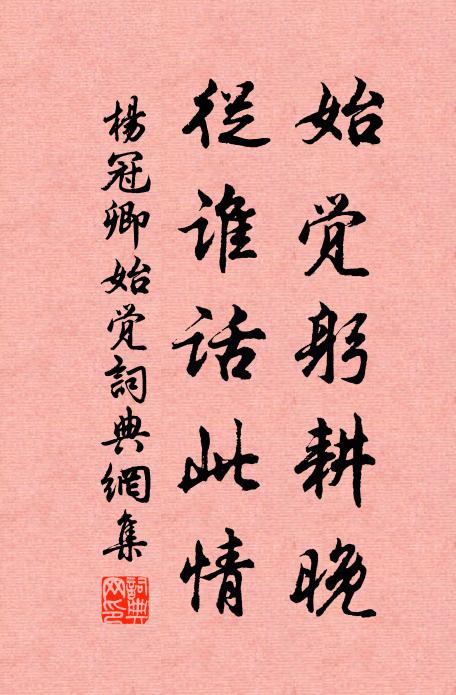 始觉躬耕晚
从谁话此情
楊冠卿始觉詞典網集
詞典网印